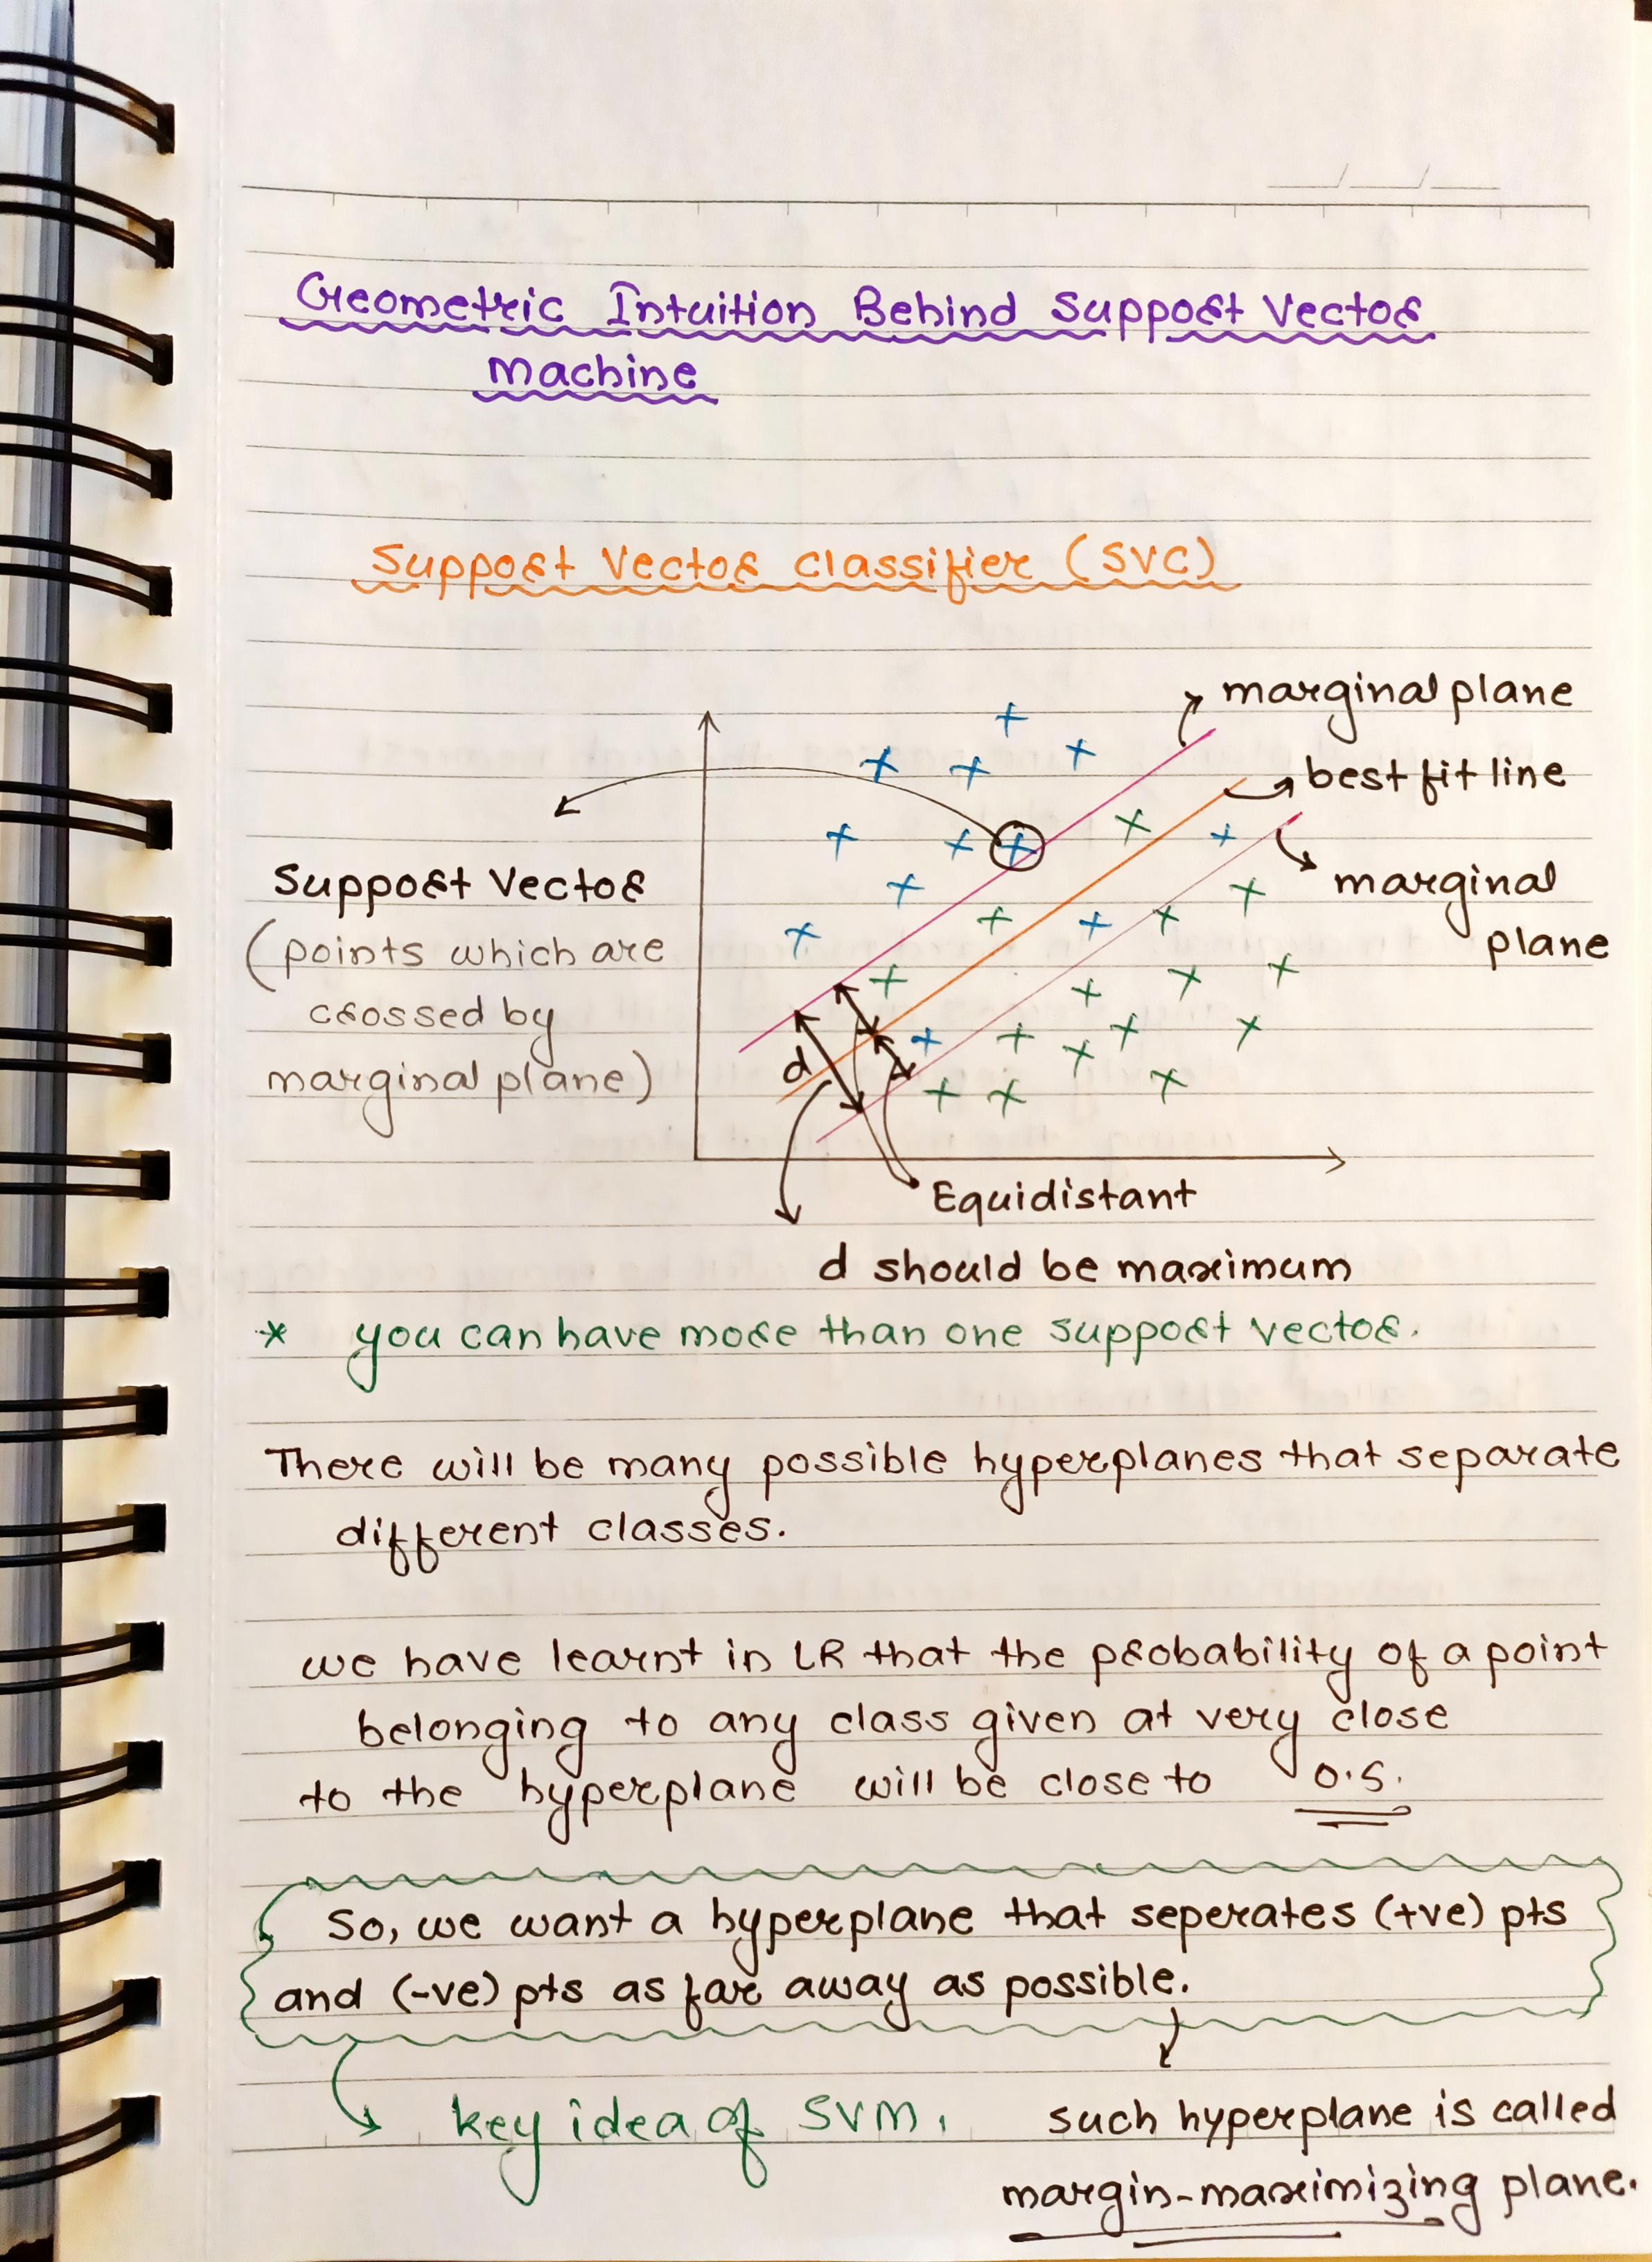 Geometric Intuition Behind Support Vector
Machine
Support Vector Classifier (SVC)
marginal plane
best fit line
marginal
plane
Support Vector
(points which are
crossed by
marginal plane)
d
Equidistant
d should be maximum
* you can have more than one support vector.
There will be many possible hyperplanes that separate
different classes.
we have learnt in LR that the probability of a point
belonging to any class given at very close
to the hyperplane will be close to 0.5.
So, we want a hyperplane that seperates (+ve) pts
and (-ve) pts as far away as possible.
key idea of SVM.
such hyperplane is called
margin-maximizing plane.